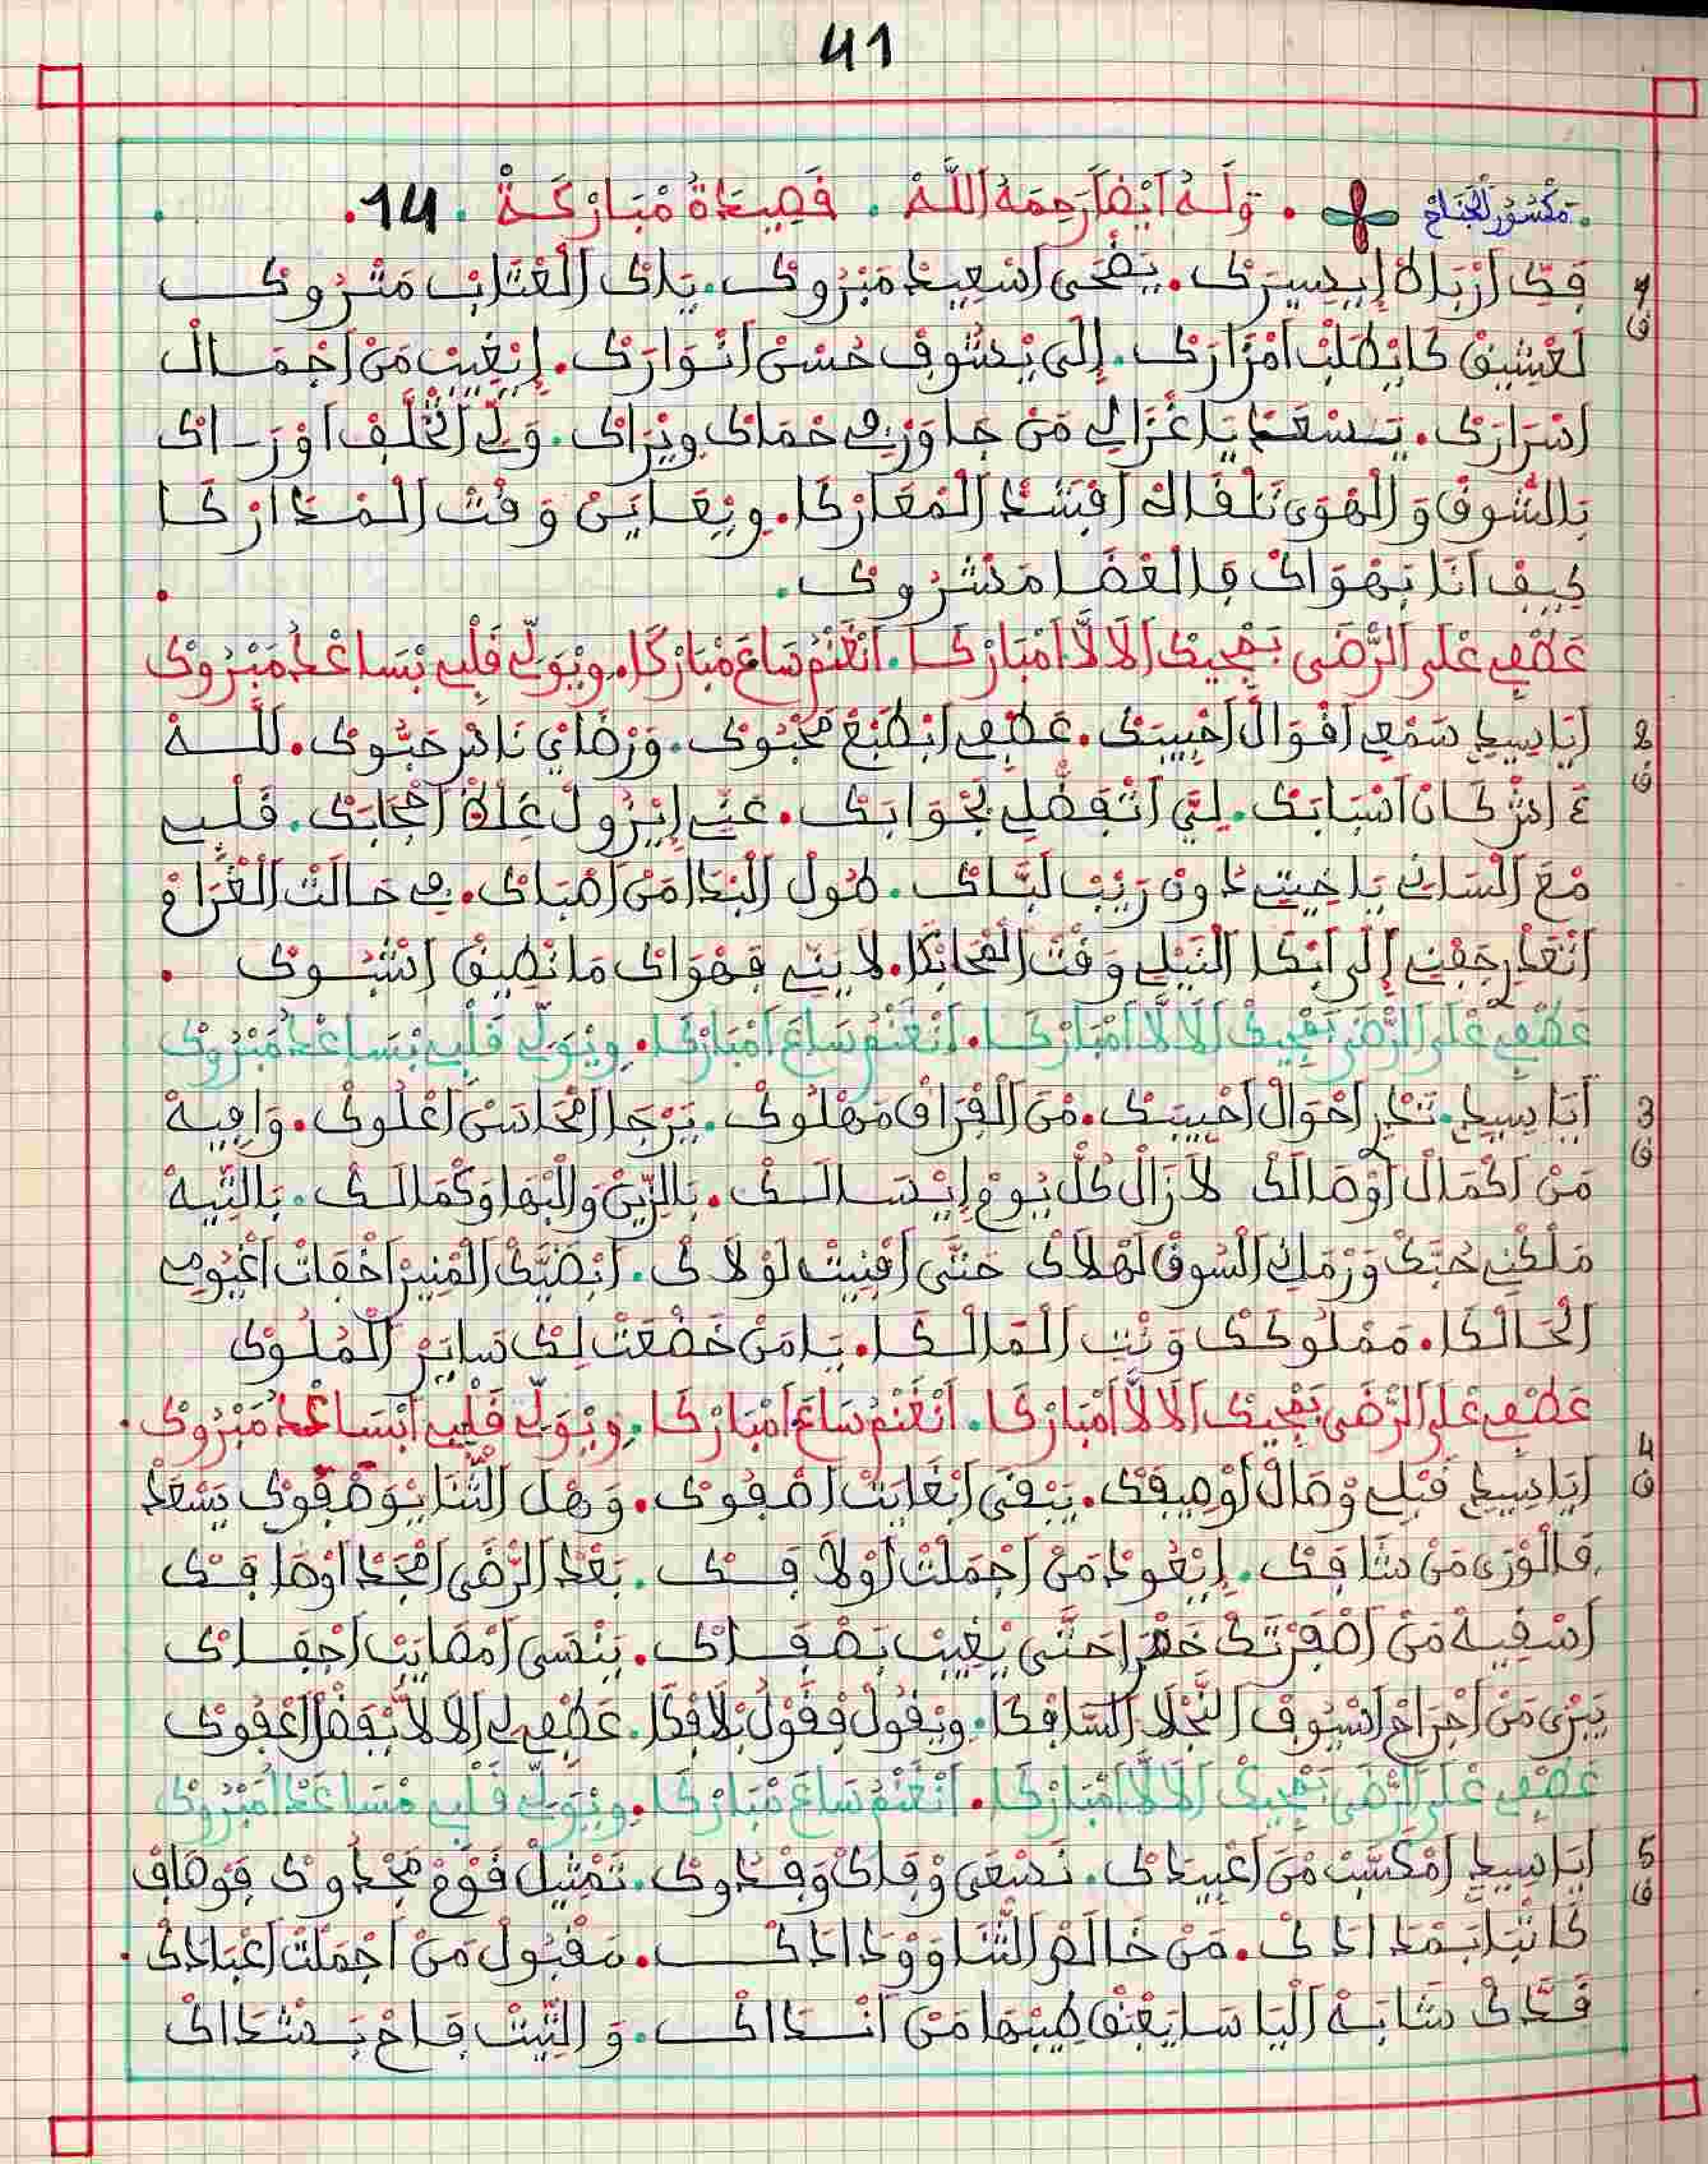 41
مكسور الجناح . وله ايضا رحمه الله . قصيدة مباركة . 14 .
1 ق
فك ازباد إيديسيرك . يضحى اسعيد مبروك . يدك العتاب متروك
لعشيق كايطلب امزارك . إلى يشوف حسن انوارك . إيغيب من اجمال
اسرارك . يسعد يا غزالي من جاور في حماك ويراك . ولي اتخلف اورـاك
بالشوق والهوى تلقاك افشد المعاركا . ويعاين وقت المداركا
كيف انا بهواك فالعضا مشروك .
عطفي على الرضى بمجيك الالا امباركا . انغنم ساع مباركا . ويولي قلبي بساعد مبروك
2 ق
أيا سيدي سمعي اقوال احبيبك . عطفي ابطبع محبوك . ورضاي ناس حبوك . لله
ءاش كان اسبابك . ليي اتفضلي بجوابك . عني إيزول غلاة احجابك . قلبي
مع السان يا خيتي داون ريب لباك . طول البدا من اصباك . في حالت الغرام
انغدر جفني إلى ابكا النيل وقت الضحانكا . لا يني فهواك ما نطيق اشوك .
عطفي على الرضى بمجيك الالا امباركا . انغنم ساع امباركا . ويولي قلبي بساعد مبروك
3 ق
أيا سيدي . تنظر احوال احبيبك . من الفراق مهلوك . يرجا امحاسن اعلوك . وافيه
من اكمال اوصالك لازال كل يوم إيسالك . بالزين والبها وكمالك . بالتيه
ملكني حبك ورماني السوق لهلاك حتى افنيت لولاك . ابضيك المنير اخفات اغيومي
الحالكا . مملوكك ونت المالكا . يا من خضعت لك ساير الملوك
عطفي على الرضى بمجيك الالا امباركا . انغنم ساع امباركا . ويولي قلبي ابساعد مبروك .
4 ق
أيا سيدي قبلي وصال اوصيفك . يبقى ابغايت اصفوك . وهل الثنا يوصفوك يسعد
فالورى من شافك . إيعود من اجملت اولافك . بعد الرضى امجد اوصافك
اسقيه من اصفرتك خمرا حتى يغيب بصفاك . ينسى امصايب اجفاك
يبرى من اجراح اسيوف النجلا السافكا . ويقول فقول بلافكا . عطفي لي الالا يفضل اعفوك
عطفي على الرضى بمجيك الالا امباركا . انغنم ساع مباركا . ويولي قلبي مساعد امبروك
5 ق
أيا سيدي امكسب من اعبيدك . نسعى وفاك وفدوك . تمثيل فوم مجدوك فوصاف
كاتبا بمدادك . من خالص الثنا وودادك . مقبول من اجملت اعبادك .
قدك شابه اليا سايعبق طيبها من انداك . والتيت فاح بشداك